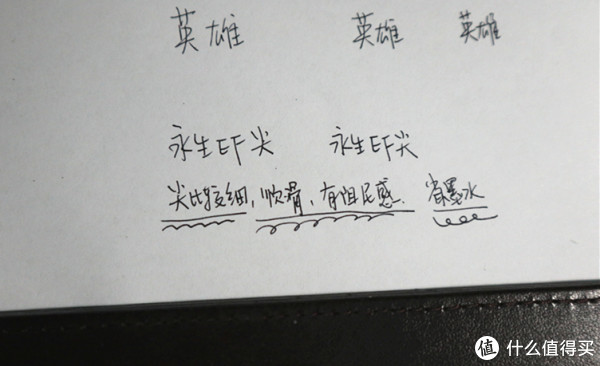 英雄 英雄 英雄
永生EF尖 永生EF尖
尖比较细,顺滑、有阻尼感. 省墨水
值 什么值得买